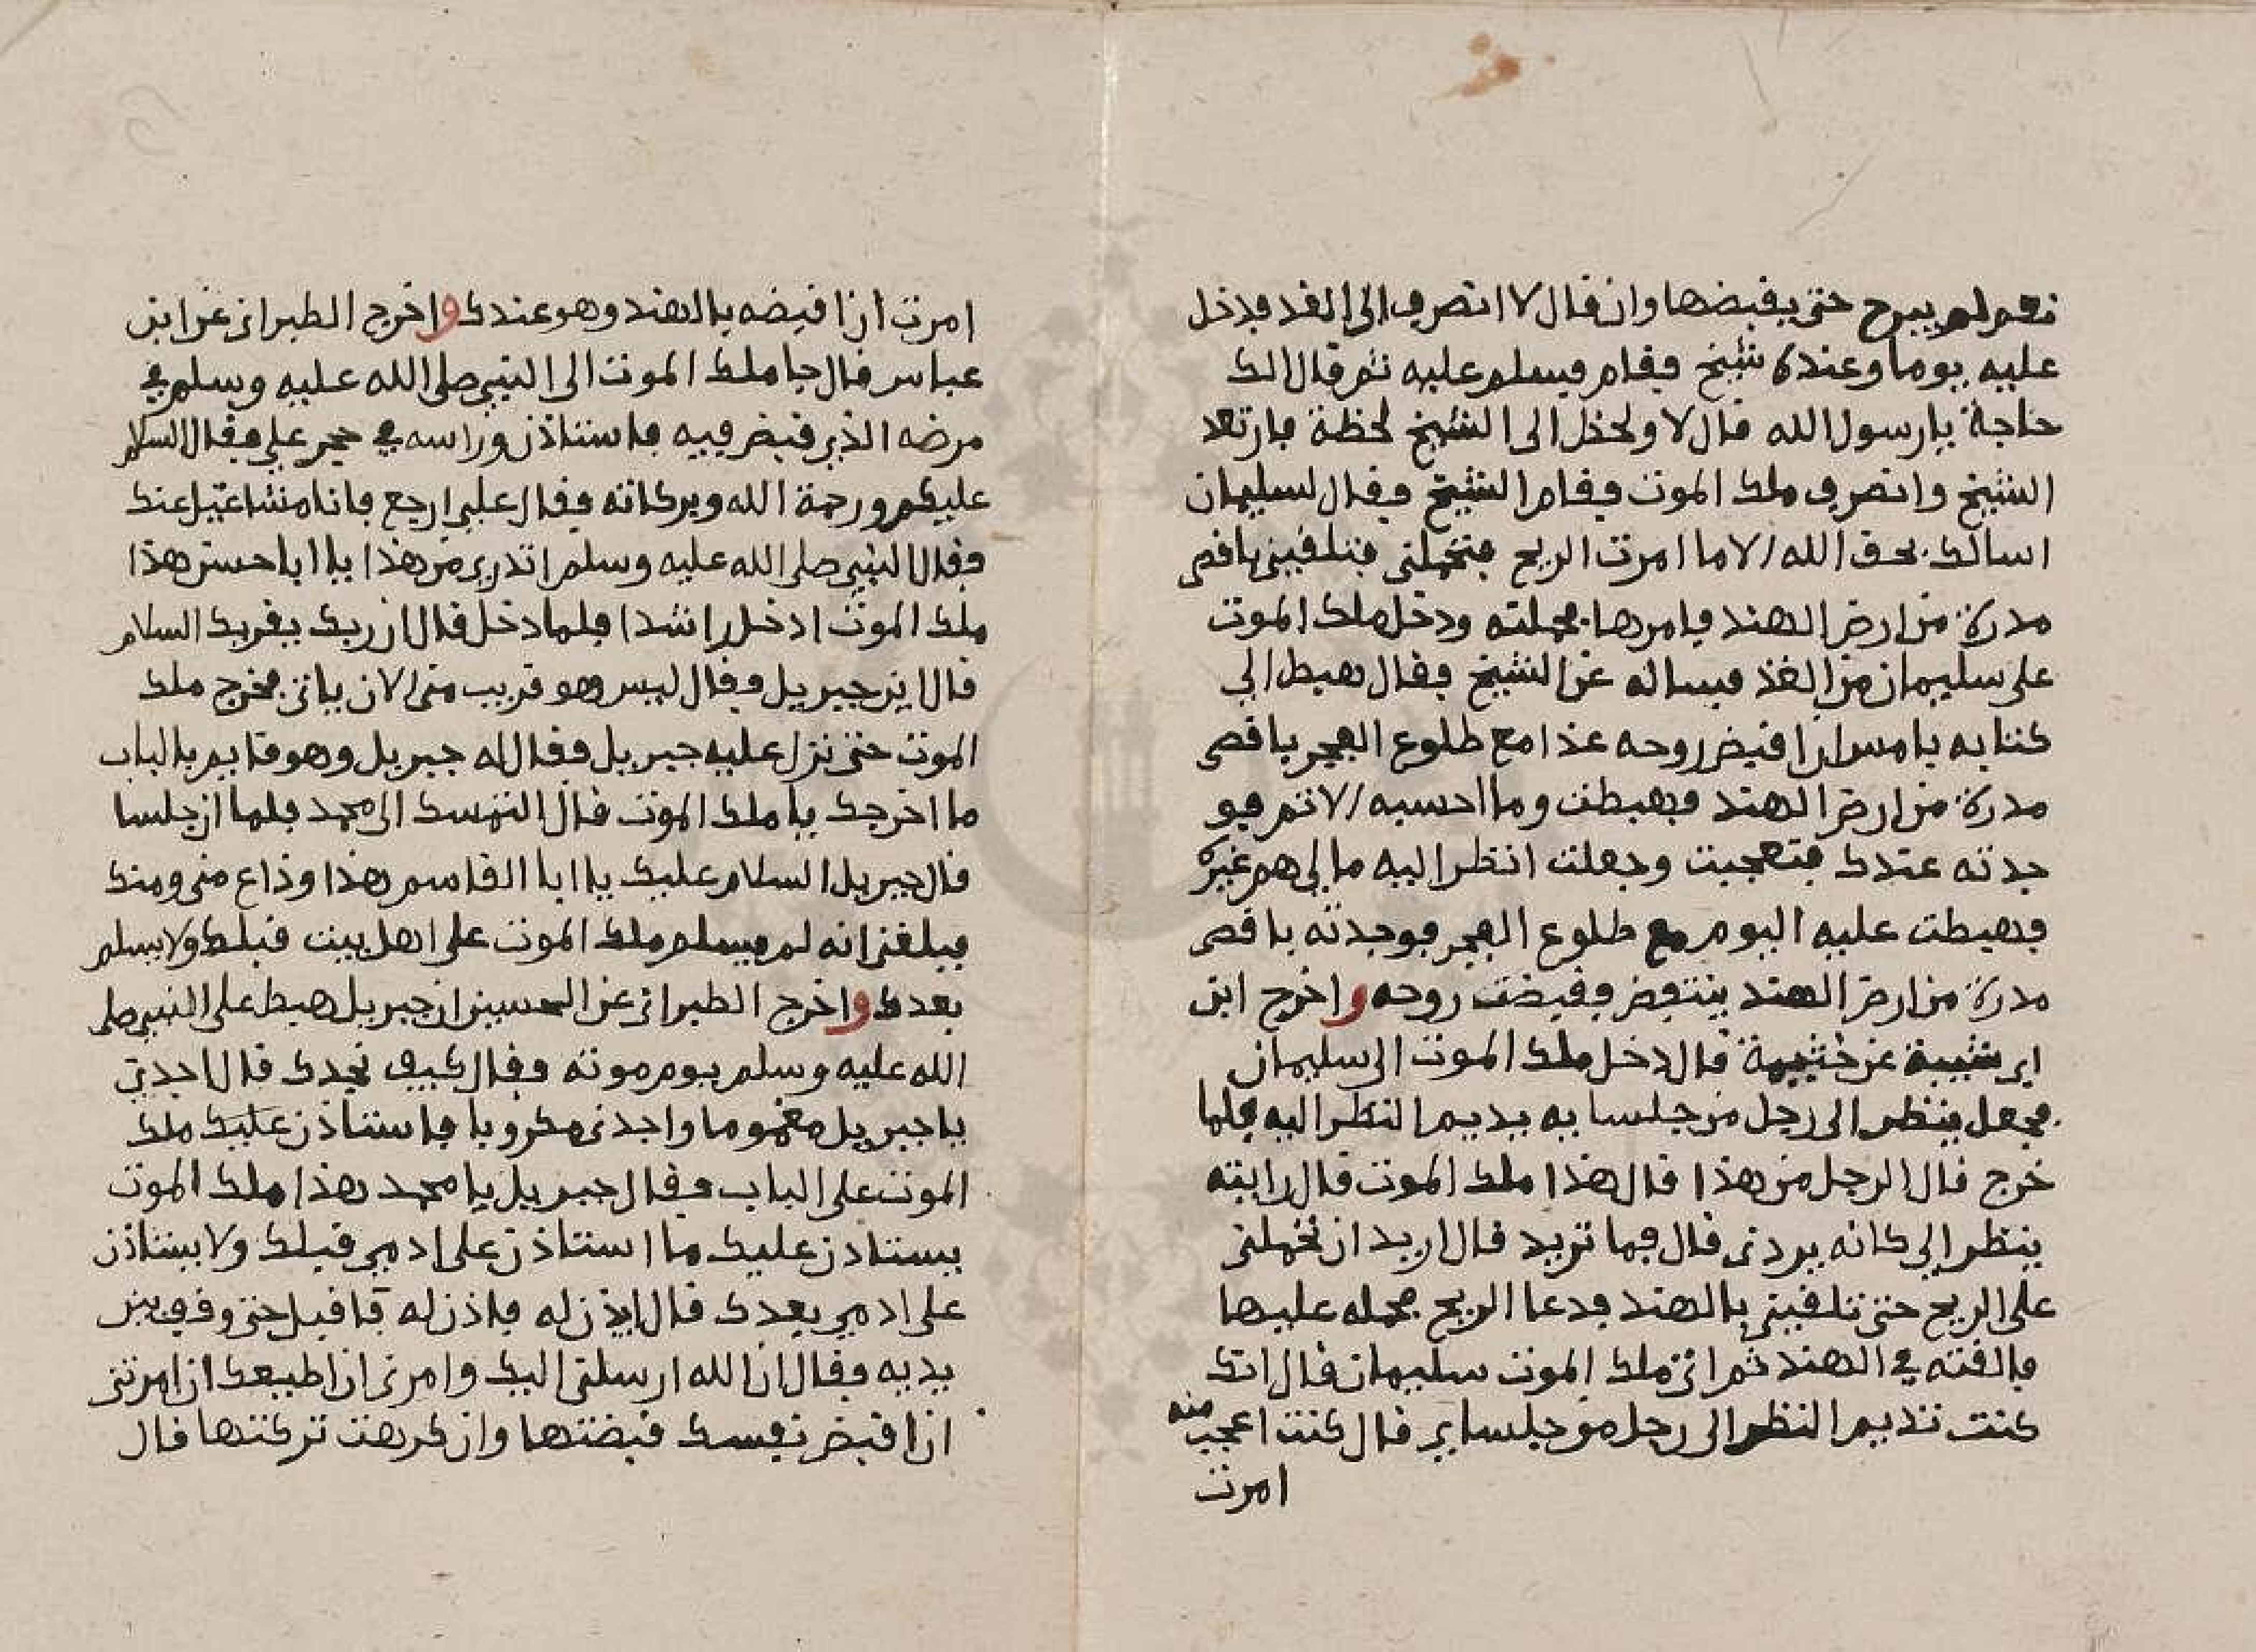 نعم لم يبرح حتى يقبضها وان قال لا انصرف الى الغد فدخل
عليه يوما وعنده شيخ فقام فسلم عليه ثم قال الك
حاجة يا رسول الله قال لا ولحظ الى الشيخ لحظة فارتعد
الشيخ وانصرف ملك الموت فقام الشيخ فقال لسليمان
اسالك بحق الله الا ما امرت الريح فتحملني فتلقيني باقصى
مدرة من ارض الهند فامرها فحملته ودخل ملك الموت
على سليمان من الغد فساله عن الشيخ فقال هبط الي
كتابه بامس ان اقبض روحه غدا مع طلوع الفجر باقصى
مدرة من ارض الهند فهبطت وما احسبه الا ثم فو
جدته عندك فتعجبت وجعلت انظر اليه ما لي هم غيره
فهبطت عليه اليوم مع طلوع الفجر فوجدته باقصى
مدرة من ارض الهند ينتفض فقبضت روحه واخرج ابن
ابي شيبة عن خثيمة قال دخل ملك الموت الى سليمان
فجعل ينظر الى رجل من جلسايه يديم النظر اليه فلما
خرج قال الرجل من هذا قال هذا ملك الموت قال رايته
ينظر الي كانه يردني قال فما تريد قال اريد ان تحملني
على الريح حتى تلقيني بالهند فدعا الريح فحمله عليها
فالقته في الهند ثم اتى ملك الموت سليمان قال انك
كنت تديم النظر الى رجل من جلساي قال كنت اعجب منه
امرت
امرت ان اقبضه بالهند وهو عندك واخرج الطبراني عن ابن
عباس قال جا ملك الموت الى النبي صلى الله عليه وسلم في
مرضه الذي قبض فيه فاستاذن وراسه في حجر علي فقال السلام
عليكم ورحمة الله وبركاته فقال علي ارجع فانا مشاغيل عنك
فقال النبي صلى الله عليه وسلم اتدري من هذا يا ابا حسن هذا
ملك الموت ادخل راشدا فلما دخل قال ان ربك يقريك السلام
قال اين جبريل فقال ليس هو قريب مني الان ياتي فخرج ملك
الموت حتى نزل عليه جبريل فقال له جبريل وهو قايم بالباب
ما اخرجك يا ملك الموت قال التمسك الى محمد فلما ان جلسا
قال جبريل السلام عليك يا ابا القاسم هذا وداع مني ومنك
فبلغني انه لم يسلم ملك الموت على اهل بيت قبلك ولا يسلم
بعدك واخرج الطبراني عن الحسين ان جبريل هبط على النبي صلى
الله عليه وسلم يوم موته فقال كيف نجدك قال اجدني
يا جبريل مغموما واجدني مكروبا فاستاذن عليك ملك
الموت على الباب فقال جبريل يا محمد هذا ملك الموت
يستاذن عليك ما استاذن على ادمي قبلك ولا يستاذن
على ادمي بعدك قال ايذن له فاذن له فاقبل حتى وقف بين
يديه فقال ان الله ارسلني اليك وامرني ان اطيعك ان امرتني
ان اقبض نفسك قبضتها وان كرهت تركتها قال